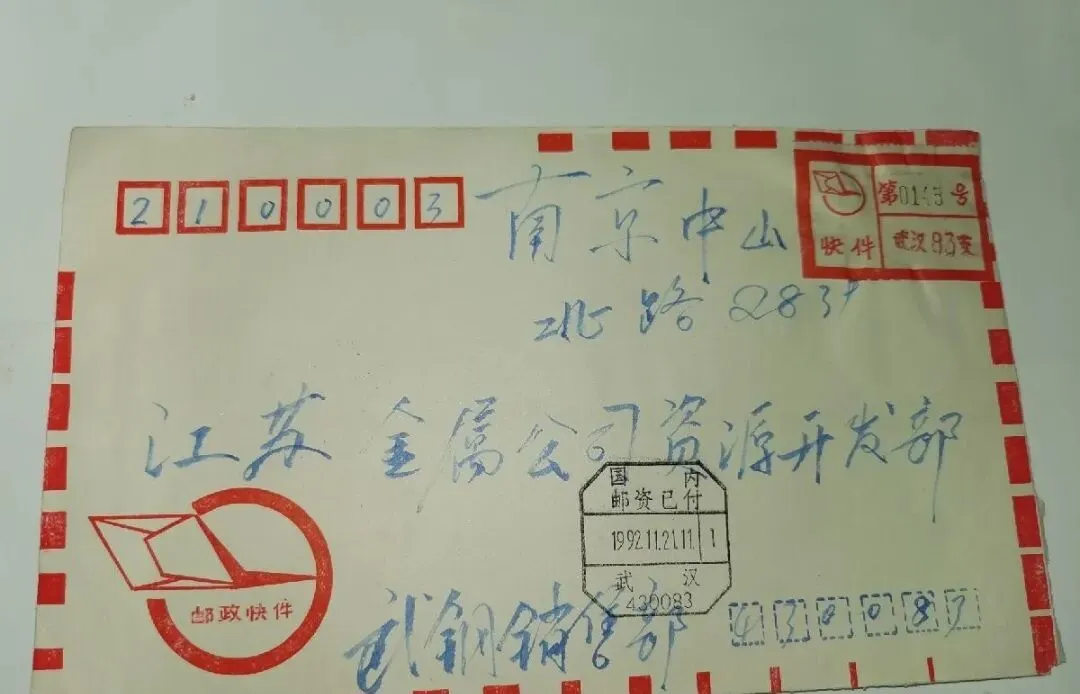 210003
南京中山
北路283#
第0145号
快件
武汉83支
江苏金属公司资源开发部
国内
邮资已付
1992.11.21.11 1
武汉
430083
邮政快件
武钢销售部
430083